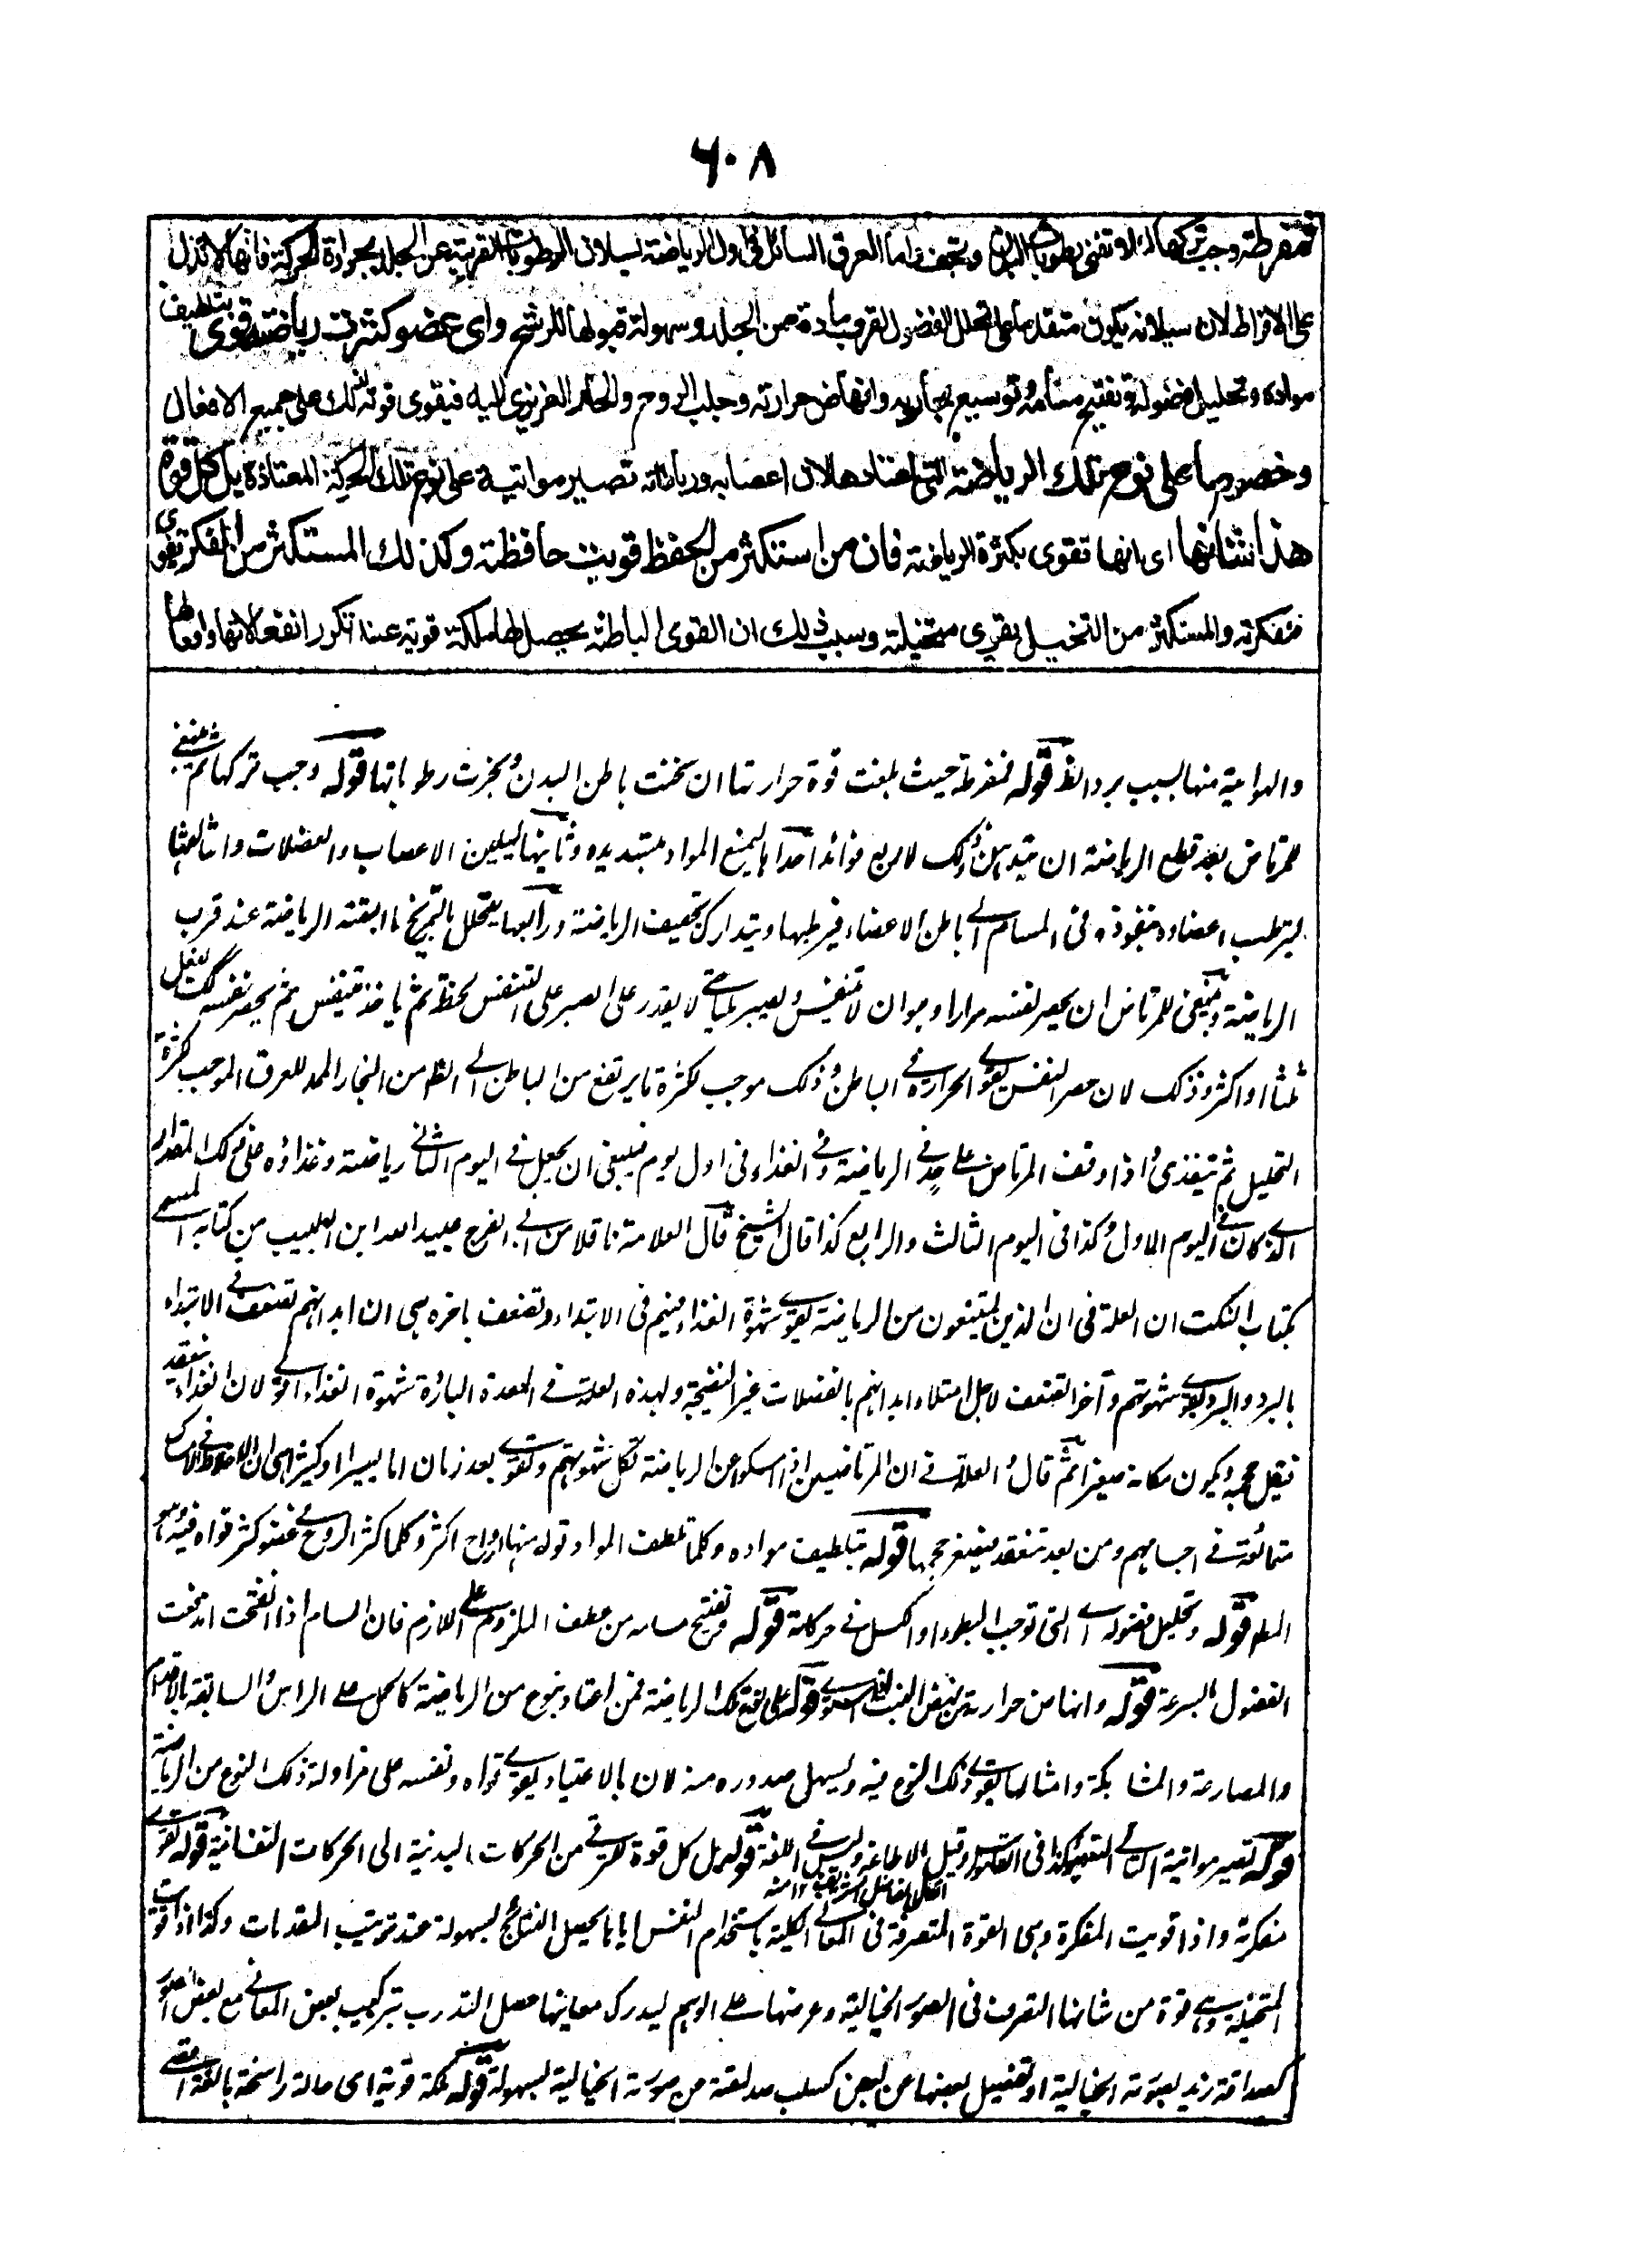 ٦٠٨
مفرطة وجب تركها لئلا تفنى رطوبات البدن ويجف واما العرق السائل فى اول الرياضة لسيلان الرطوبات القريبة عن الجلد بحرارة الحركة فانها لا تدل
على الافراط لان سيلانه يكون متقدما على تحلل الفضول لقرب مادة من الجلد وسهولة قبولها للترشح واى عضو كثرت رياضته قوى بتلطيف
مواده وتحليل فضوله وتفتيح مسامه وتوسيع مجاريه وانهاض حرارته وجلب الروح والحار الغريزي اليه فيقوى قوته لذلك على جميع الافعال
وخصوصا على نوع تلك الرياضة التى اعتادها لان اعصابه ورباطاته تصير مواتية على نوع تلك الحركة المعتادة بل كل قوة
هذا شانها اى انها تقوى بكثرة الرياضة فان من استكثر من الحفظ قويت حافظته وكذلك المستكثر من الفكر تقوى
مفكرته والمستكثر من التخيل يقوى متخيلته وسبب ذلك ان القوى الباطنة يحصل لها ملكة قوية عند تكرر انفعالاتها وافعالها
والهوائية منها بسبب برد الظ قوله مفرطة حيث بلغت قوة حرارتها ان سخنت باطن البدن وبخرت رطوباتها قوله وجب تركها ثم ينبغى
للمرتاض بعد قطع الرياضة ان يتدهن وذلك لاربع فوائد احداها ليمنع المواد بتسديده وثانيها ليلين الاعصاب والعضلات وثالثها
ليرطب اعضاءه بنفوذه فى المسام الى باطن الاعضاء فيرطبها ويتدارك تجفيف الرياضة ورابعها يتحلل بالتمريخ ما ابقته الرياضة عند قرب
الرياضة وينبغى للمرتاض ان يحصر نفسه مرارا وهو ان لا يتنفس ويصبر حتى لا يقدر على الصبر على التنفس لحظة ثم ياخذ يتنفس ثم يحصر نفسه كك يفعل
ثلثا او اكثر وذلك لان حصر النفس يقوى الحرارة فى الباطن وذلك موجب لكثرة ما يرتفع من الباطن الى الظ من البخار الممد للعرق الموجب لكثرة
التحليل ثم يتغذى واذا وقف المرتاض على حد فى الرياضة وفى الغذاء فى اول يوم فينبغى ان يجعل فى اليوم الثانى رياضته وغذاؤه على ذلك المقدار
الذى كان فى اليوم الاول وكذا فى اليوم الثالث والرابع كذا قال الشيخ قال العلامة ناقلا من ابى الفرج عبيد الله ابن الطبيب من كتابه المسمى
بكتاب النكت ان العلة فى ان الذين يمتنعون من الرياضة يقوى شهوة الغذاء فيهم فى الابتداء وتضعف باخره هى ان ابدانهم تضعف فى الابتداء
بالبرد والبرد يقوى شهوتهم وآخرا تضعف لاجل امتلاء ابدانهم بالفضلات غير النضيجة ولهذه العلة فى المعدة الباردة شهوة الغذاء اقوى لان الغذاء ينعقد
فيقل حجمه ويكون مكانه صغيرا ثم قال والعلة فى ان المرتاضين اذا امسكوا عن الرياضة تكل شهوتهم وتقوى بعد زمان اما يسيرا او كثيرا هى ان الاخلاط فى الامساك
متمائعة فى اجسامهم ومن بعد تنعقد فيصغر حجمها قوله بتلطيف مواده وكلما تلطف المواد تولد منها ارواح اكثر وكلما كثر الروح فى عضو كثر قواه فيه وهو
المط قوله وتحليل فضوله اى التى توجب البطوء او الكسل فى حركاته قوله وتفتيح مسامه من عطف الملزوم على اللازم فان المسام اذا انفتحت اندفعت
الفضول بالسرعة قوله وانهاض حرارته قوله على نوع تلك الرياضة فمن اعتاد بنوع من الرياضة كالحمل على الراس والسابقة بالاقدام
والمصارعة والمشابكة وامثالها يقوى ذلك النوع فيه ويسهل صدوره منه لان بالاعتياد يقوى قواه ونفسه على مزاولة ذلك النوع من الرياضة
قوله تصير مواتية التهيؤ كذا فى القاموس وقيل الاطاعة وليس فى اللغة قوله بل كل قوة ترقى من الحركات البدنية الى الحركات النفسانية قوله تقوى
مفكرته واذا قويت المفكرة وهى القوة المتصرفة فى المعانى الكلية باستخدام النفس اياها يحصل النتائج بسهولة عند ترتيب المقدمات وكذا اذا قويت
المتخيلة وهى قوة من شانها التصرف فى الصور الخيالية وعرضها على الوهم ليدرك معانيها حصل التدرب بتركيب بعض المعانى مع بعض الصور
كصداقة زيد بصورته الخيالية او تفصيل بعضها عن بعض كسلب صداقته من صورته الخيالية بسهولة قوله ملكة قوية اى حالة راسخة بالغة اقصى